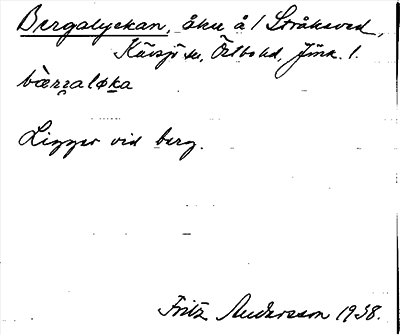 Bergalyckan, åker å / Stråkeved,
Kävsjö sn, Östbo hd, Jönk. l.
bæ̀rralφka
Ligger vid berg.
Fritz Andersson 1938.